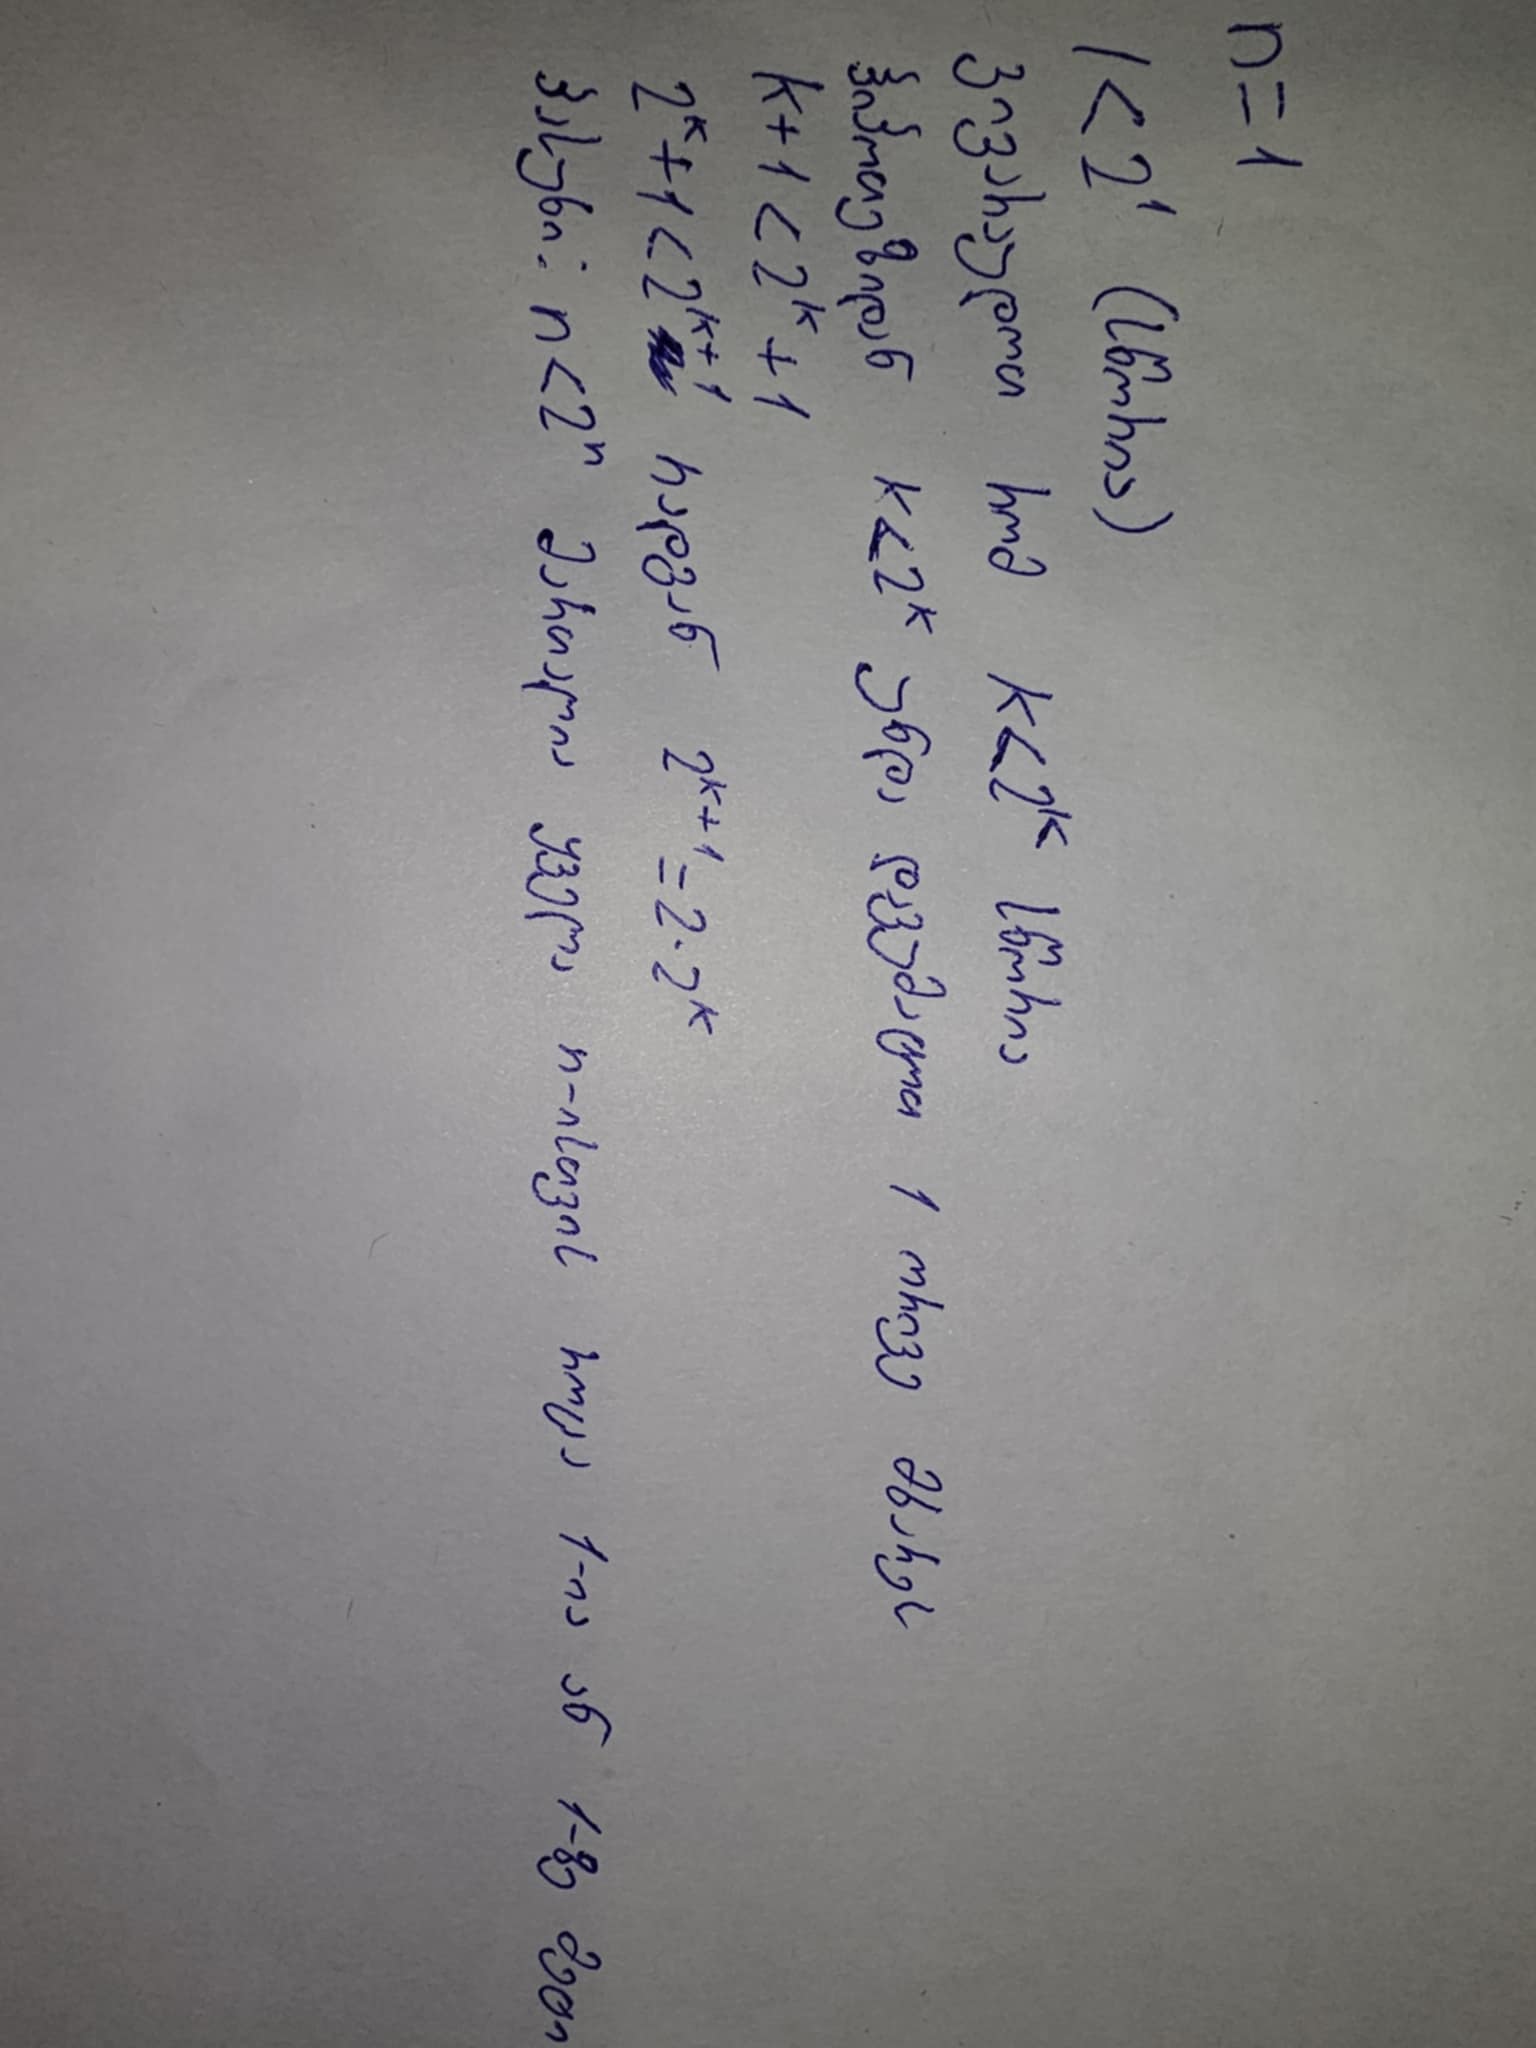 n=1
1<2¹ (სწორია)
ვივარაუდოთ რომ k<2ᵏ სწორია
ჰიპოთეზიდან k<2ᵏ უნდა დავუმატოთ 1 ორივე მხარეს
k+1<2ᵏ+1
2ᵏ+1<2ᵏ⁺¹ რადგან 2ᵏ⁺¹=2·2ᵏ
პასუხი: n<2ⁿ მართალია ყველა n-ისთვის როცა 1-ია ან 1-ზე მეტი